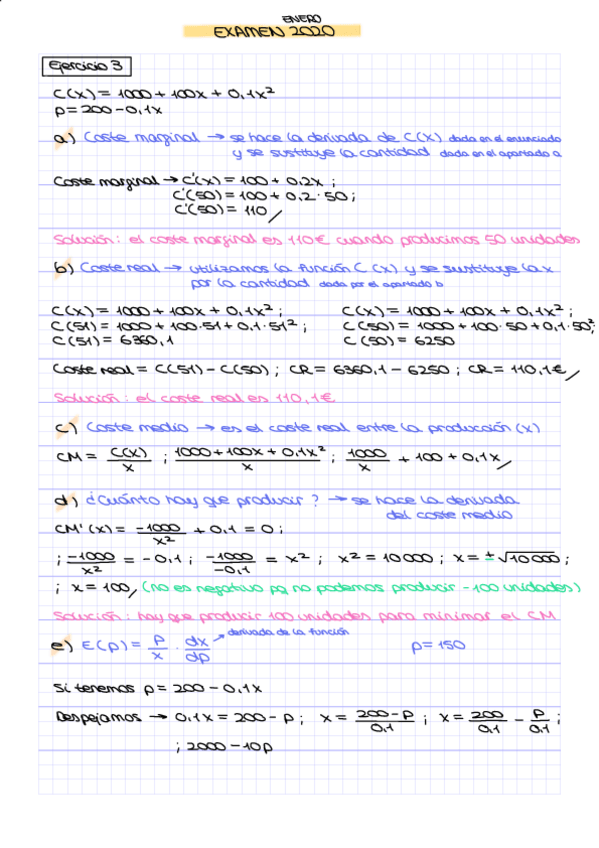 ENERO
EXAMEN 2020
Ejercicio 3
C(x) = 1000 + 100x + 0,1x²
p = 200 - 0,1x
a) Coste marginal → se hace la derivada de C(x) dada en el enunciado
y se sustituye la cantidad dada en el apartado a
Coste marginal → C'(x) = 100 + 0,2x ;
C'(50) = 100 + 0,2 · 50 ;
C'(50) = 110 /
Solución : el coste marginal es 110€ cuando producimos 50 unidades
b) Coste real → utilizamos la función C (x) y se sustituye la x
por la cantidad dada por el apartado b
C(x) = 1000 + 100x + 0,1x² ; C(x) = 1000 + 100x + 0,1x² ;
C(51) = 1000 + 100·51 + 0,1·51² ; C(50) = 1000 + 100·50 + 0,1·50² ;
C(51) = 6360,1 C(50) = 6250
Coste real = C(51) - C(50) ; CR = 6360,1 - 6250 ; CR = 110,1€ /
Solución : el coste real es 110,1€
c) Coste medio → es el coste real entre la producción (x)
CM = C(x)/x ; 1000+100x+0,1x²/x ; 1000/x + 100 + 0,1x /
d) ¿Cuánto hay que producir ? → se hace la derivada
del coste medio
CM'(x) = -1000/x² + 0,1 = 0 ;
; -1000/x² = -0,1 ; -1000/-0,1 = x² ; x² = 10000 ; x = ±√10000 ;
; x = 100 / (no es negativo pq no podemos producir -100 unidades)
Solución : hay que producir 100 unidades para minimar el CM
e) E(p) = p/x · dx/dp → derivada de la función p = 150
Si tenemos p = 200 - 0,1x
Despejamos → 0,1x = 200 - p ; x = 200-p/0,1 ; x = 200/0,1 - p/0,1 ;
; 2000 - 10p